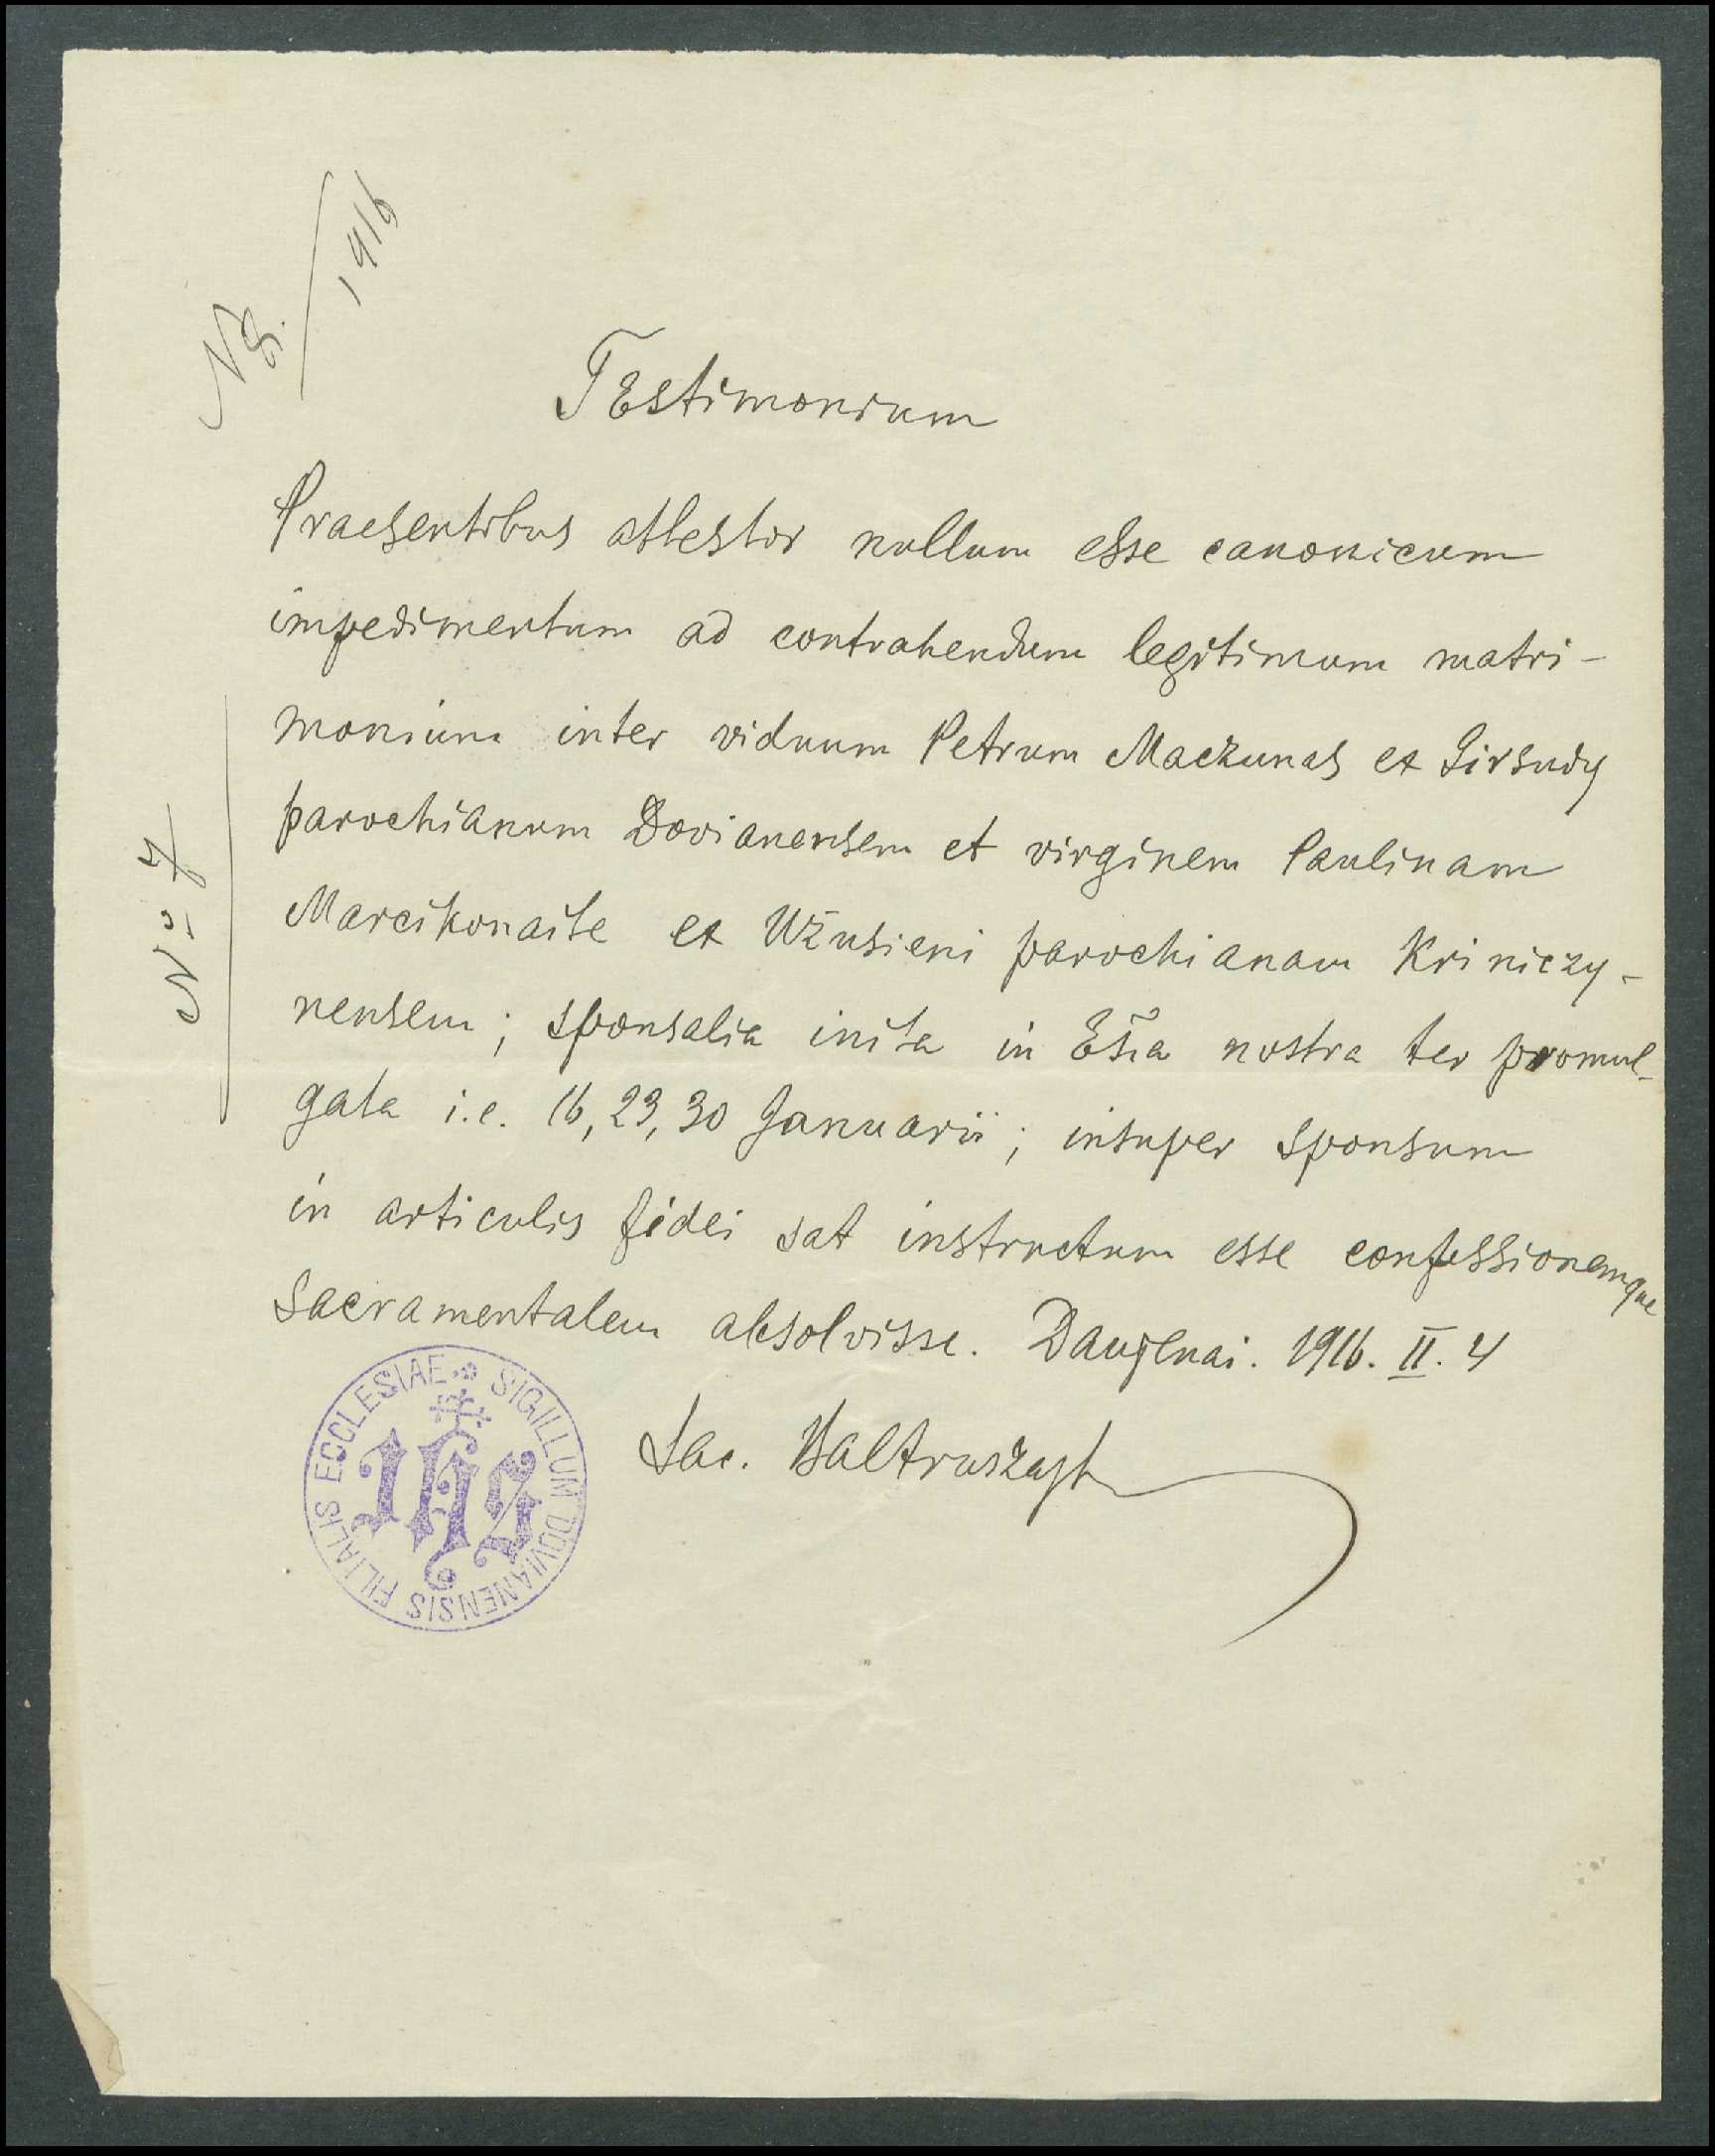 N 8. / 1916
Testimonium
Praesentibus attestor nullum esse canonicum
impedimentum ad contrahendum legitimum matri-
monium inter viduum Petrum Maczunas ex Girsudy
parochianum Dovianensem et virginem Paulinam
Marcikonaite ex Użusieni parochianam Kriniczy-
nensem; sponsalia inita in Ecc̃a nostra ter promul-
gata i.e. 16, 23, 30 Januarii; insuper sponsum
in articulis fidei sat instructum esse confessionemque
sacramentalem absolvisse. Daujenai. 1916. II. 4
Sac. Baltruszajt
№ 7
SIGILLUM DOVIANENSIS FILIALIS ECCLESIAE
IHS